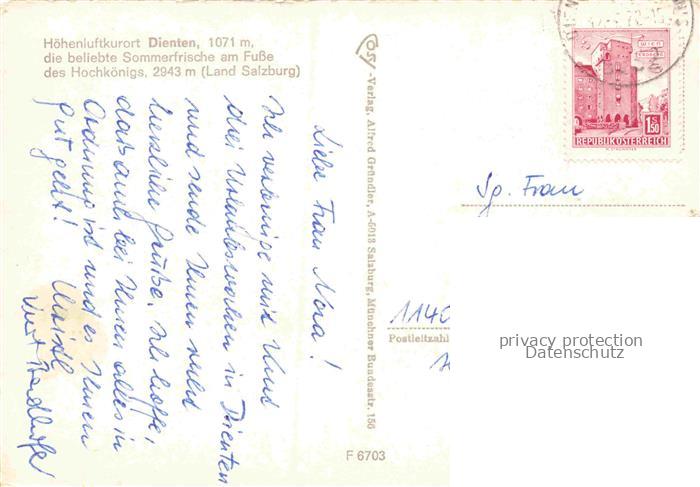 Höhenluftkurort Dienten, 1071 m,
die beliebte Sommerfrische am Fuße
des Hochkönigs, 2943 m (Land Salzburg)
Liebe Frau Nora!
Ich verbringe mit Kund
drei Urlaubswochen in Dienten
und sende Ihnen recht
herzliche Grüße. Ich hoffe,
dass auch bei Ihnen alles in
Ordnung ist und es Ihnen
gut geht!
ÖSV-Verlag, Alfred Gründler, A-5013 Salzburg, Münchner Bundesstr. 156
F 6703
WIEN
ERDBERG
1.50
S
REPUBLIK ÖSTERREICH
Sp. Frau
1140
Postleitzahl
privacy protection
Datenschutz